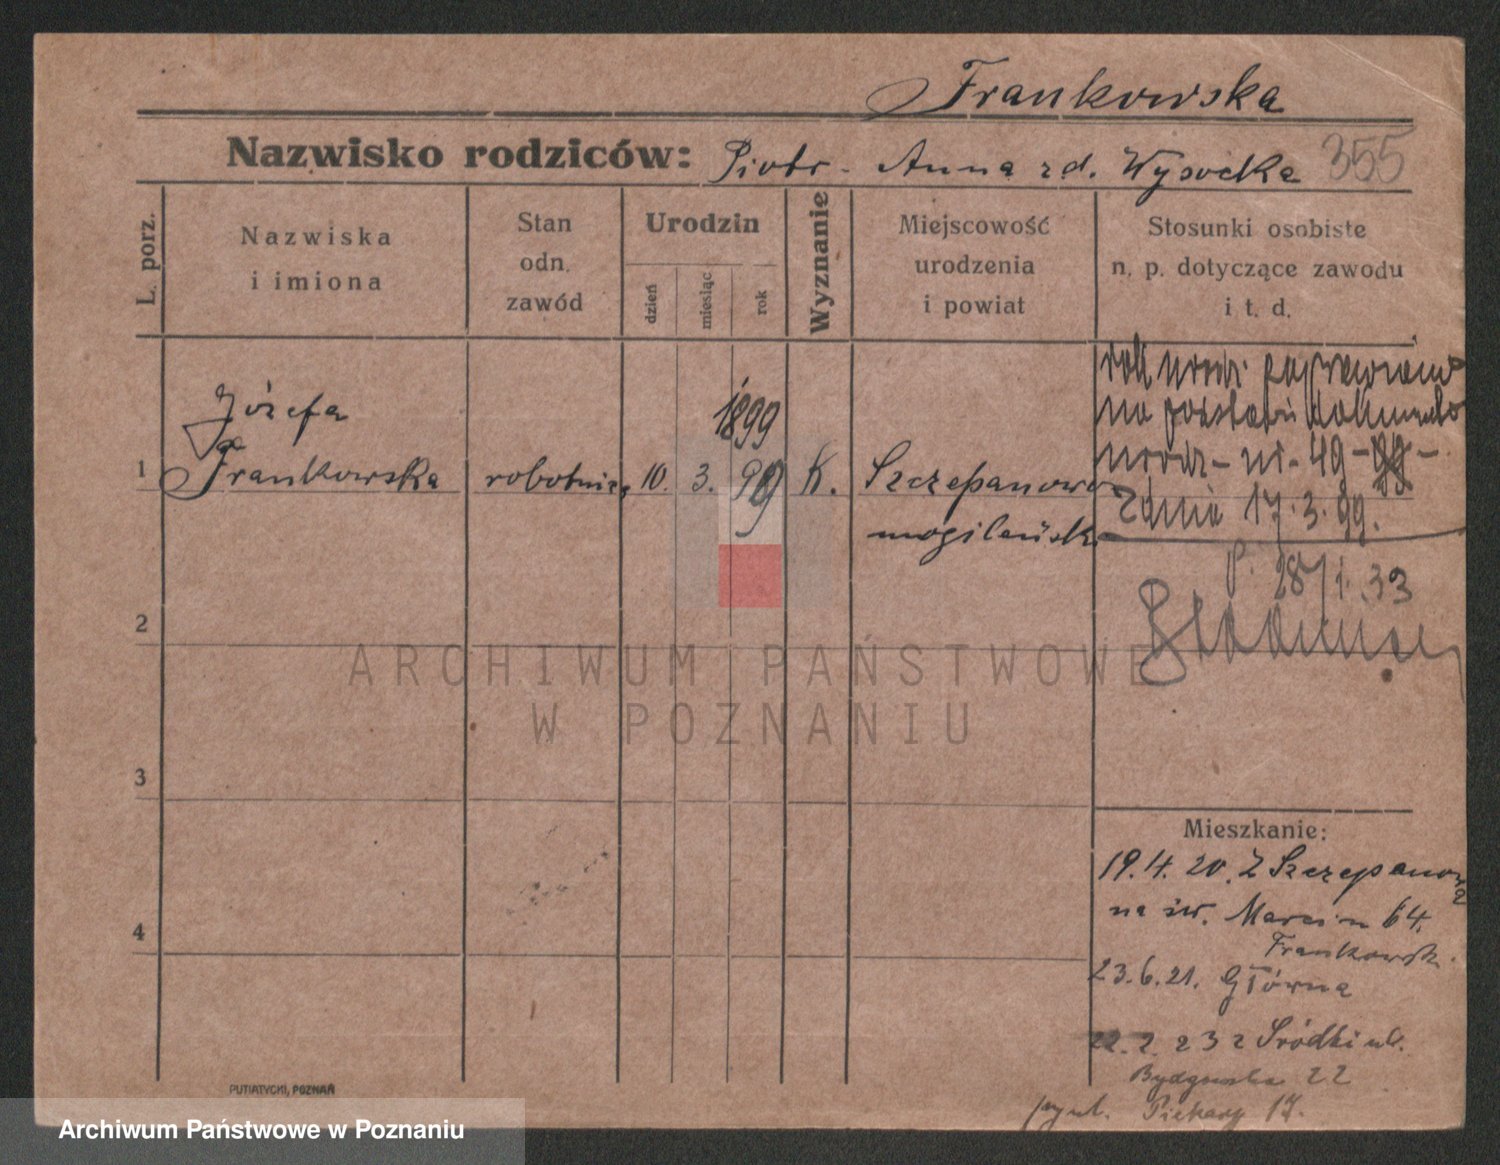 Frankowska
Nazwisko rodziców: Piotr - Anna zd. Wysocka 355
L. porz.
Nazwiska
i imiona
Stan
odn.
zawód
Urodzin
dzień
miesiąc
rok
Wyznanie
Miejscowość
urodzenia
i powiat
Stosunki osobiste
n. p. dotyczące zawodu
i t. d.
1
Józefa
Frankowska
robotnica
10. 3. 99
1899
K.
Szczepanowo
mogileński
rok urodz. poprawiono
na podstawie dokumentu
urodz - nr - 49 - 99 -
z dnia 17.3.99.
P. 28/1.33
2
3
4
Mieszkanie:
19.4.20. Z Szczepanowa
na św. Marcin 64.
Frankowsk.
23.6.21. Główna
22.2.23 z Śródki ul.
Bydgowska 22
przy ul. Piekary 17.
PUTIATYCKI, POZNAŃ
ARCHIWUM PAŃSTWOWE
W POZNANIU
Archiwum Państwowe w Poznaniu